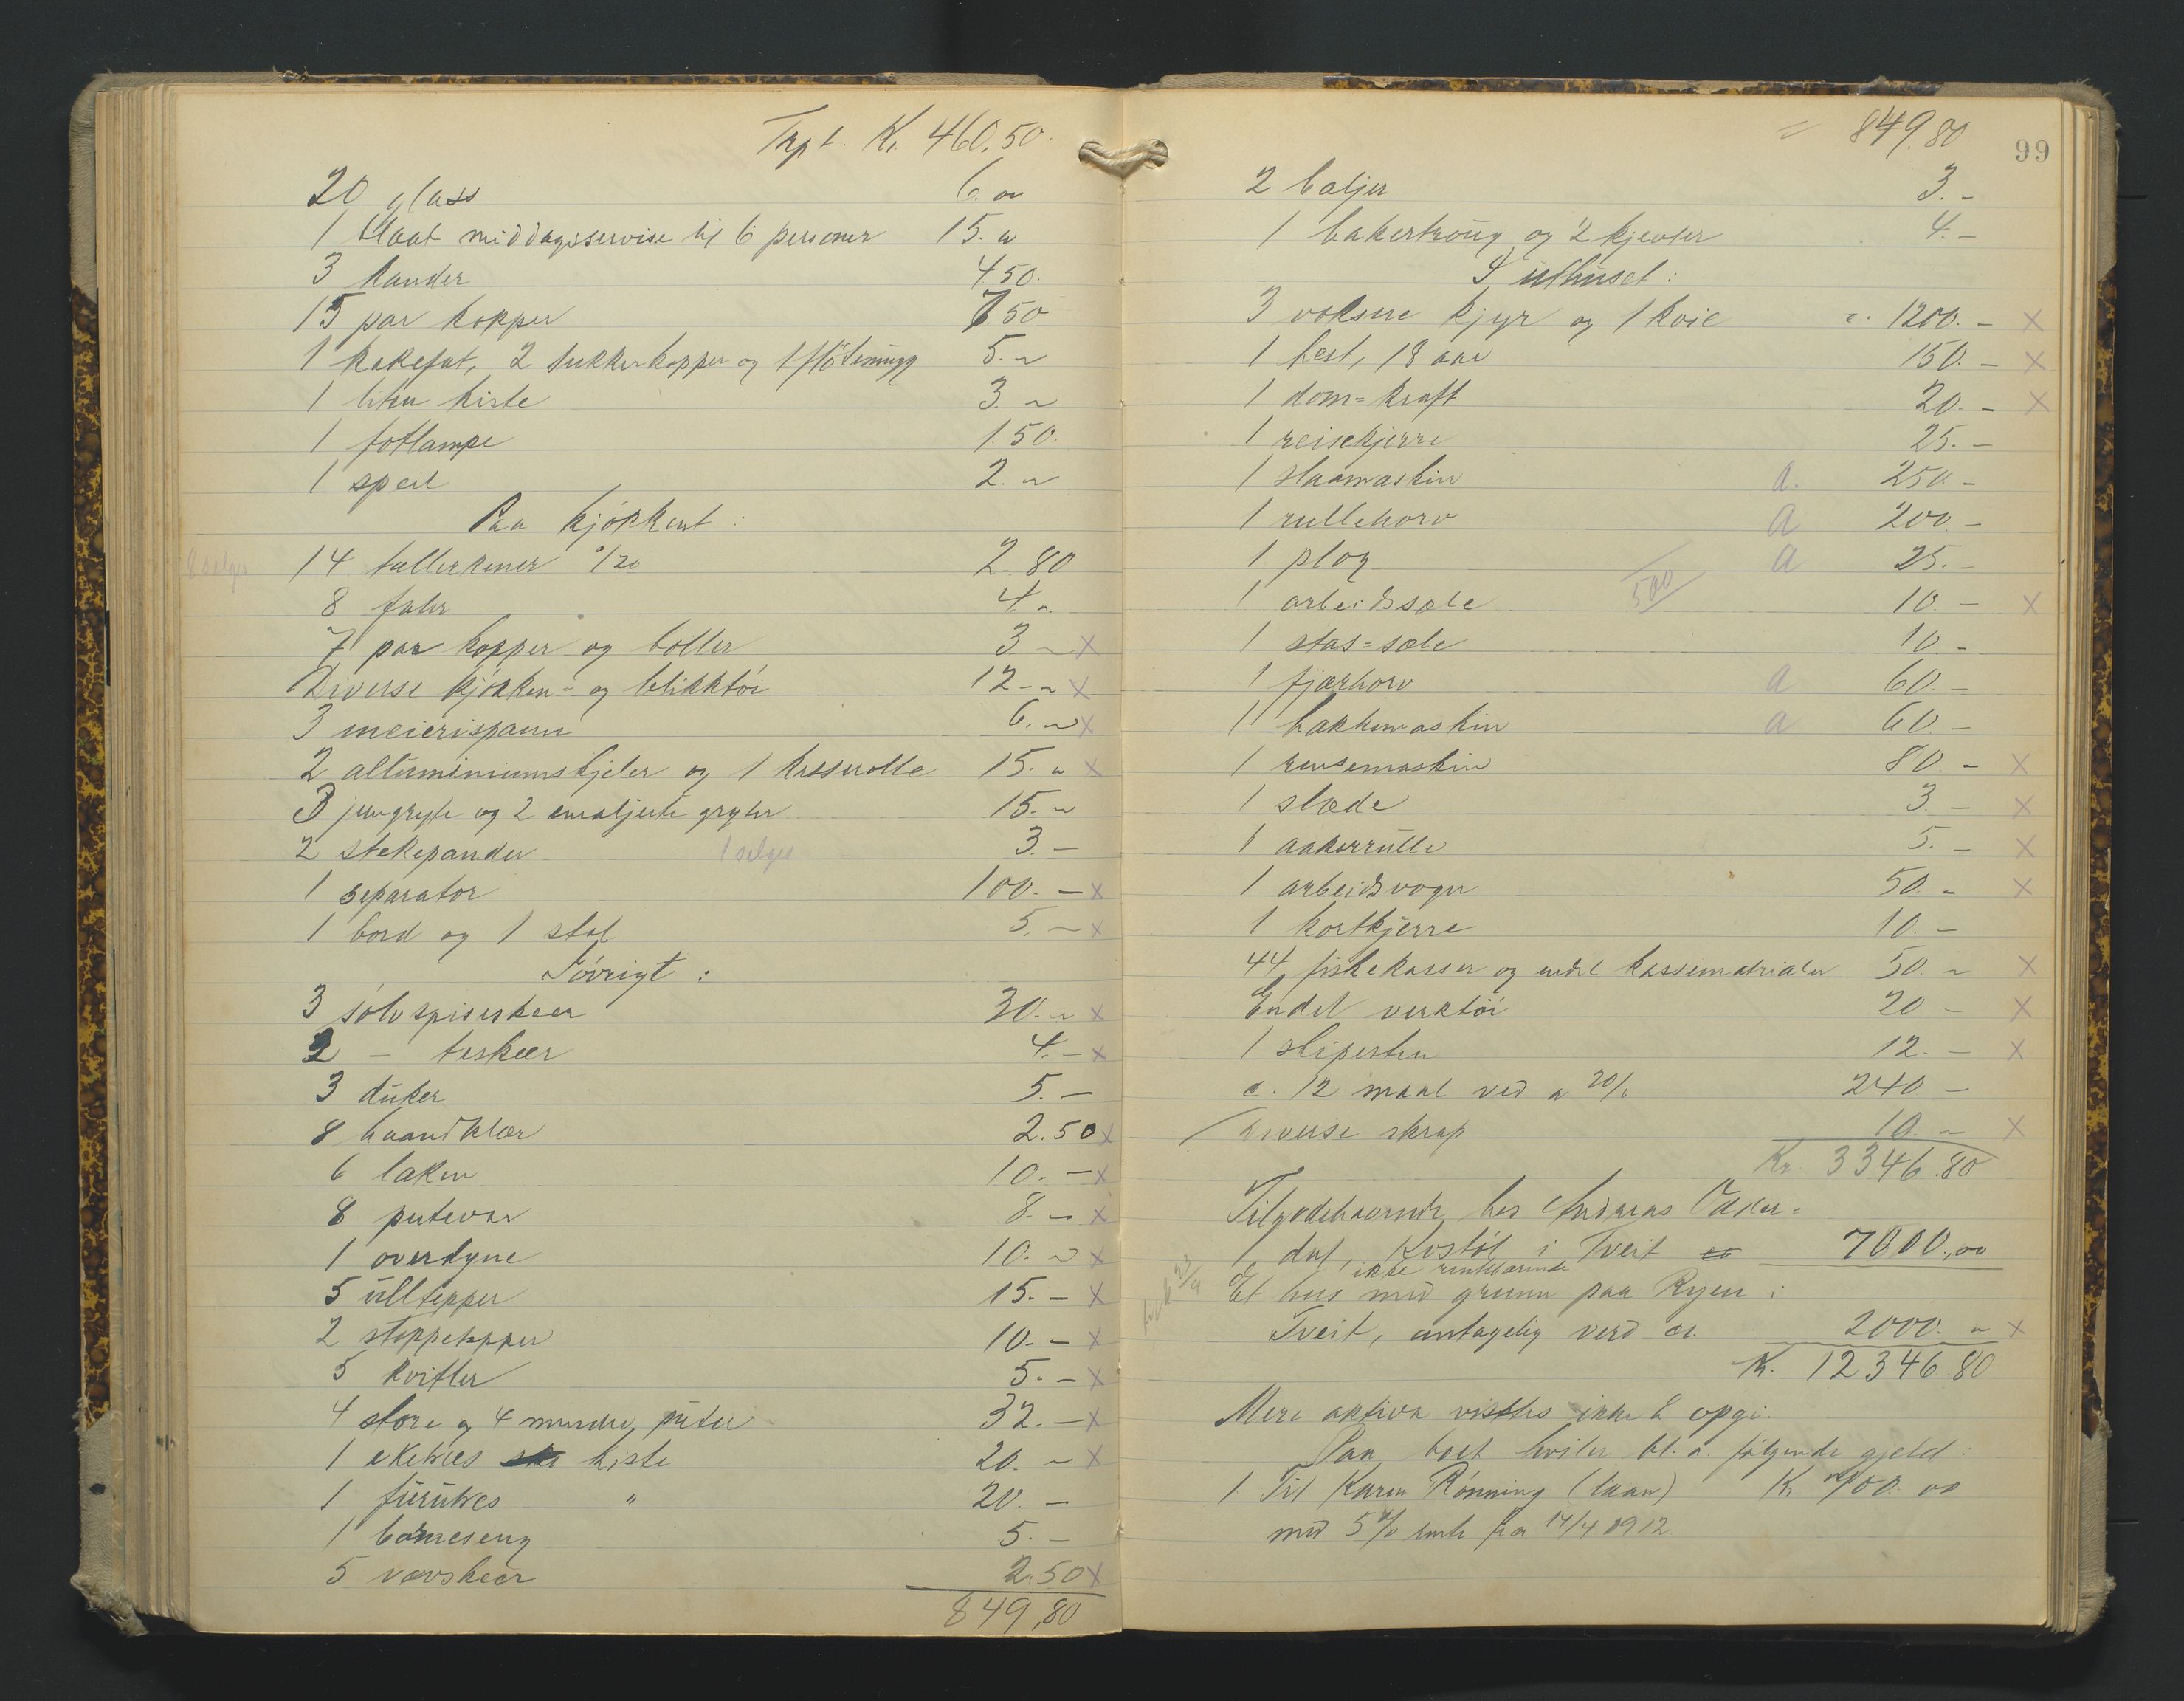 Trpt. Kr. 460,50.
20 glass 6. "
1 blaat middagsservise til 6 personer 15. "
3 kander 4.50.
15 par kopper 7.50
1 kakefat, 2 sukkerkopper og 1 flötemugg 5. "
1 liten kiste 3. "
1 fotlampe 1.50.
1 speil 2. "
Paa kjökkent :
14 tallerkener °/20 2.80
8 fater 4. "
7 par kopper og boller 3 " x
Diverse kjökken- og blikktöi 12 - " x
3 meierispann 6. " x
2 alluminiumskjeler og 1 kasserolle 15. " x
3 jerngryte og 2 emaljerte gryter 15. "
2 stekepander 1 selges 3. -
1 separator 100. - x
1 bord og 1 stol 5. - x
Iövrigt :
3 sölvspiseskeer 30. " x
2 - teskeer 4. - x
3 duker 5. -
8 haandklær 2.50 x
6 laken 10. - x
8 putevar 8. - x
1 overdyne 10. " x
5 ulltepper 15. - x
2 stoppetepper 10. - x
5 kvitler 5. - x
4 store og 4 mindre puter 32. - x
1 eketræs kiste 20. " x
1 furutræs " 20. -
1 barneseng 5. -
5 vævskeer 2.50 x
849,80
= 849.80
99
2 baljer 3. -
1 bakertroug og 2 kjevler 4. -
I uthuset :
3 voksne kjyr og 1 kvie c. 1200. - x
1 hest, 18 aar 150. - x
1 dom=kraft 20. - x
1 reisekjerre 25. -
1 slaamaskin a. 250. -
1 rulleharv a 200 -
1 plog a 25. -
1 arbeidssæle 500 10. - x
1 stas=sæle 10 -
1 fjærharv a 60. -
1 hakkemaskin a 60 -
1 rensemaskin 80 - x
1 slæde 3. - x
1 aakerrulle 5. - x
1 arbeidsvogn 50. - x
1 kortkjerre 10. -
44 fiskekasser og endel kassematrialer 50. " x
Endel verktöi 20 - x
1 slipesten 12. - x
c. 12 maal ved a 20/" 240 -
Diverse skrap 10. " x
Kr. 3346.80
Tilgodehavende hos Andreas Odder=
dal, Kostöl i Tveit 7000.,00
ikke rentbærende
Et hus med grunn paa Ryen i
Tveit, antagelig verd ca. 2000. " x
Kr. 12346.80
Mere aktiva visstes ikke å opgi.
Paa boet hviler bl. a. følgende gjeld :
1 Til Karen Rønning (laan) Kr 700. 00
med 5 % rente fra 14/4 1912